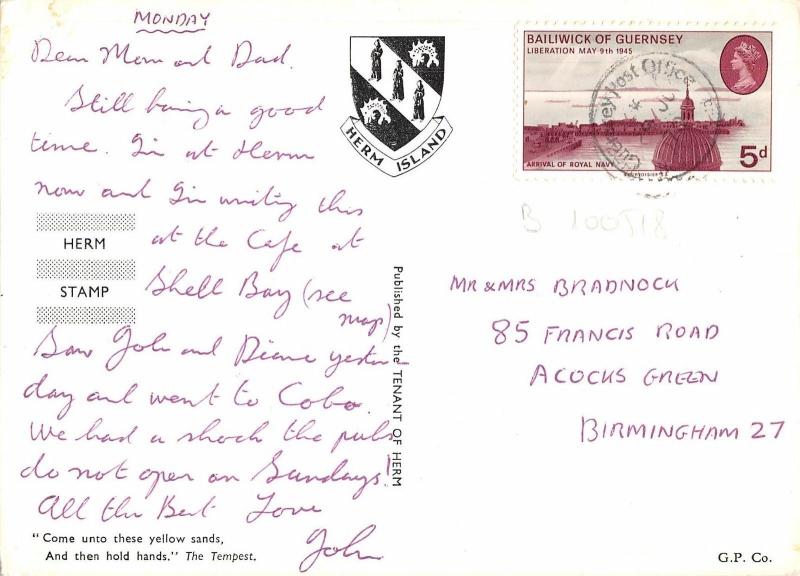 MONDAY
Dear Mom and Dad.
Still having a good
time. I'm at Herm
now and I'm writing this
at the Cafe at
Shell Bay (see
map)
Saw John and Diane yester-
day and went to Cobo.
We had a shock the pubs
do not open on Sundays!
All the Best Love
John
HERM
STAMP
"Come unto these yellow sands,
And then hold hands." The Tempest.
HERM ISLAND
Published by the TENANT OF HERM
BAILIWICK OF GUERNSEY
LIBERATION MAY 9th 1945
ARRIVAL OF ROYAL NAVY
5d
Guernsey Post Office
B 100518
MR & MRS BRADNOCK
85 FRANCIS ROAD
ACOCKS GREEN
BIRMINGHAM 27
G.P. Co.